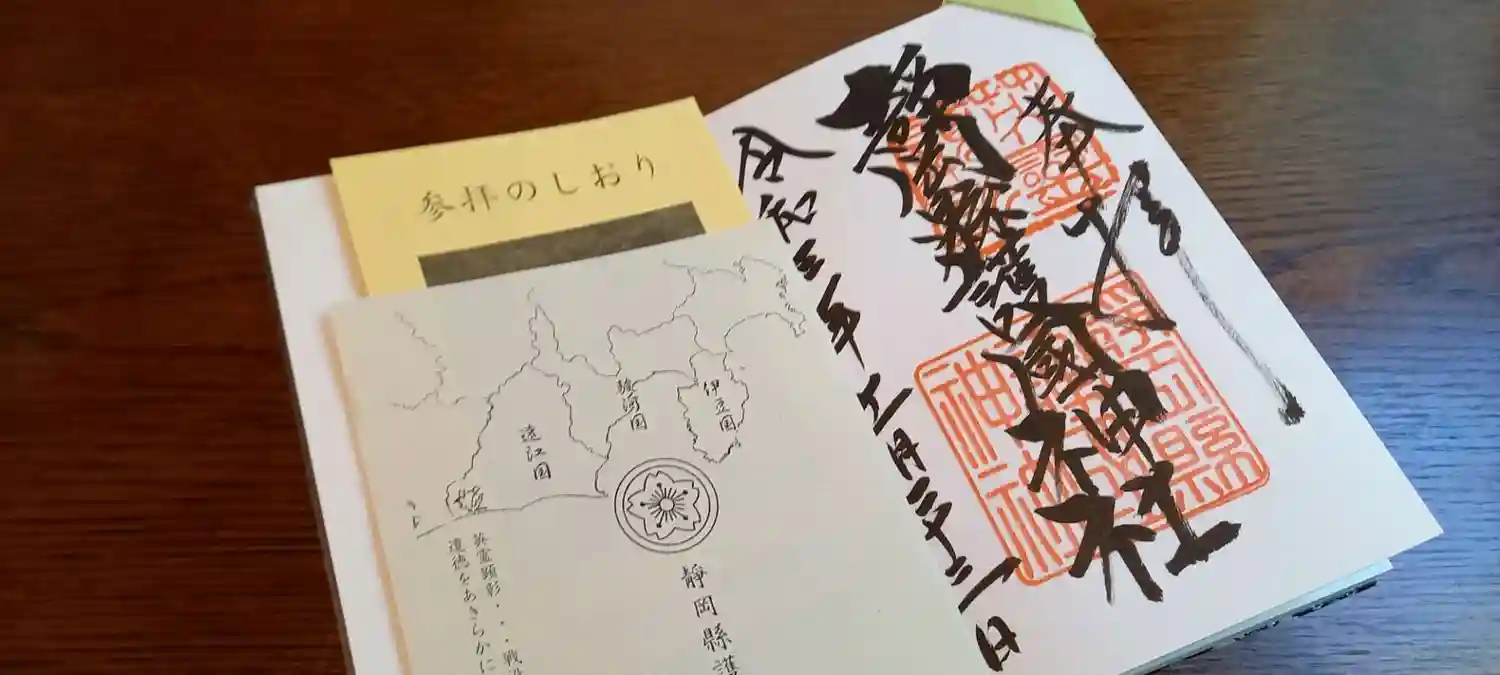 奉拝
靜岡縣護國神社
令和三年十一月二十三日
參拝のしおり
伊豆国
駿河国
遠江国
英霊顕彰・・・戦没
道徳をあきらかに
靜岡縣護